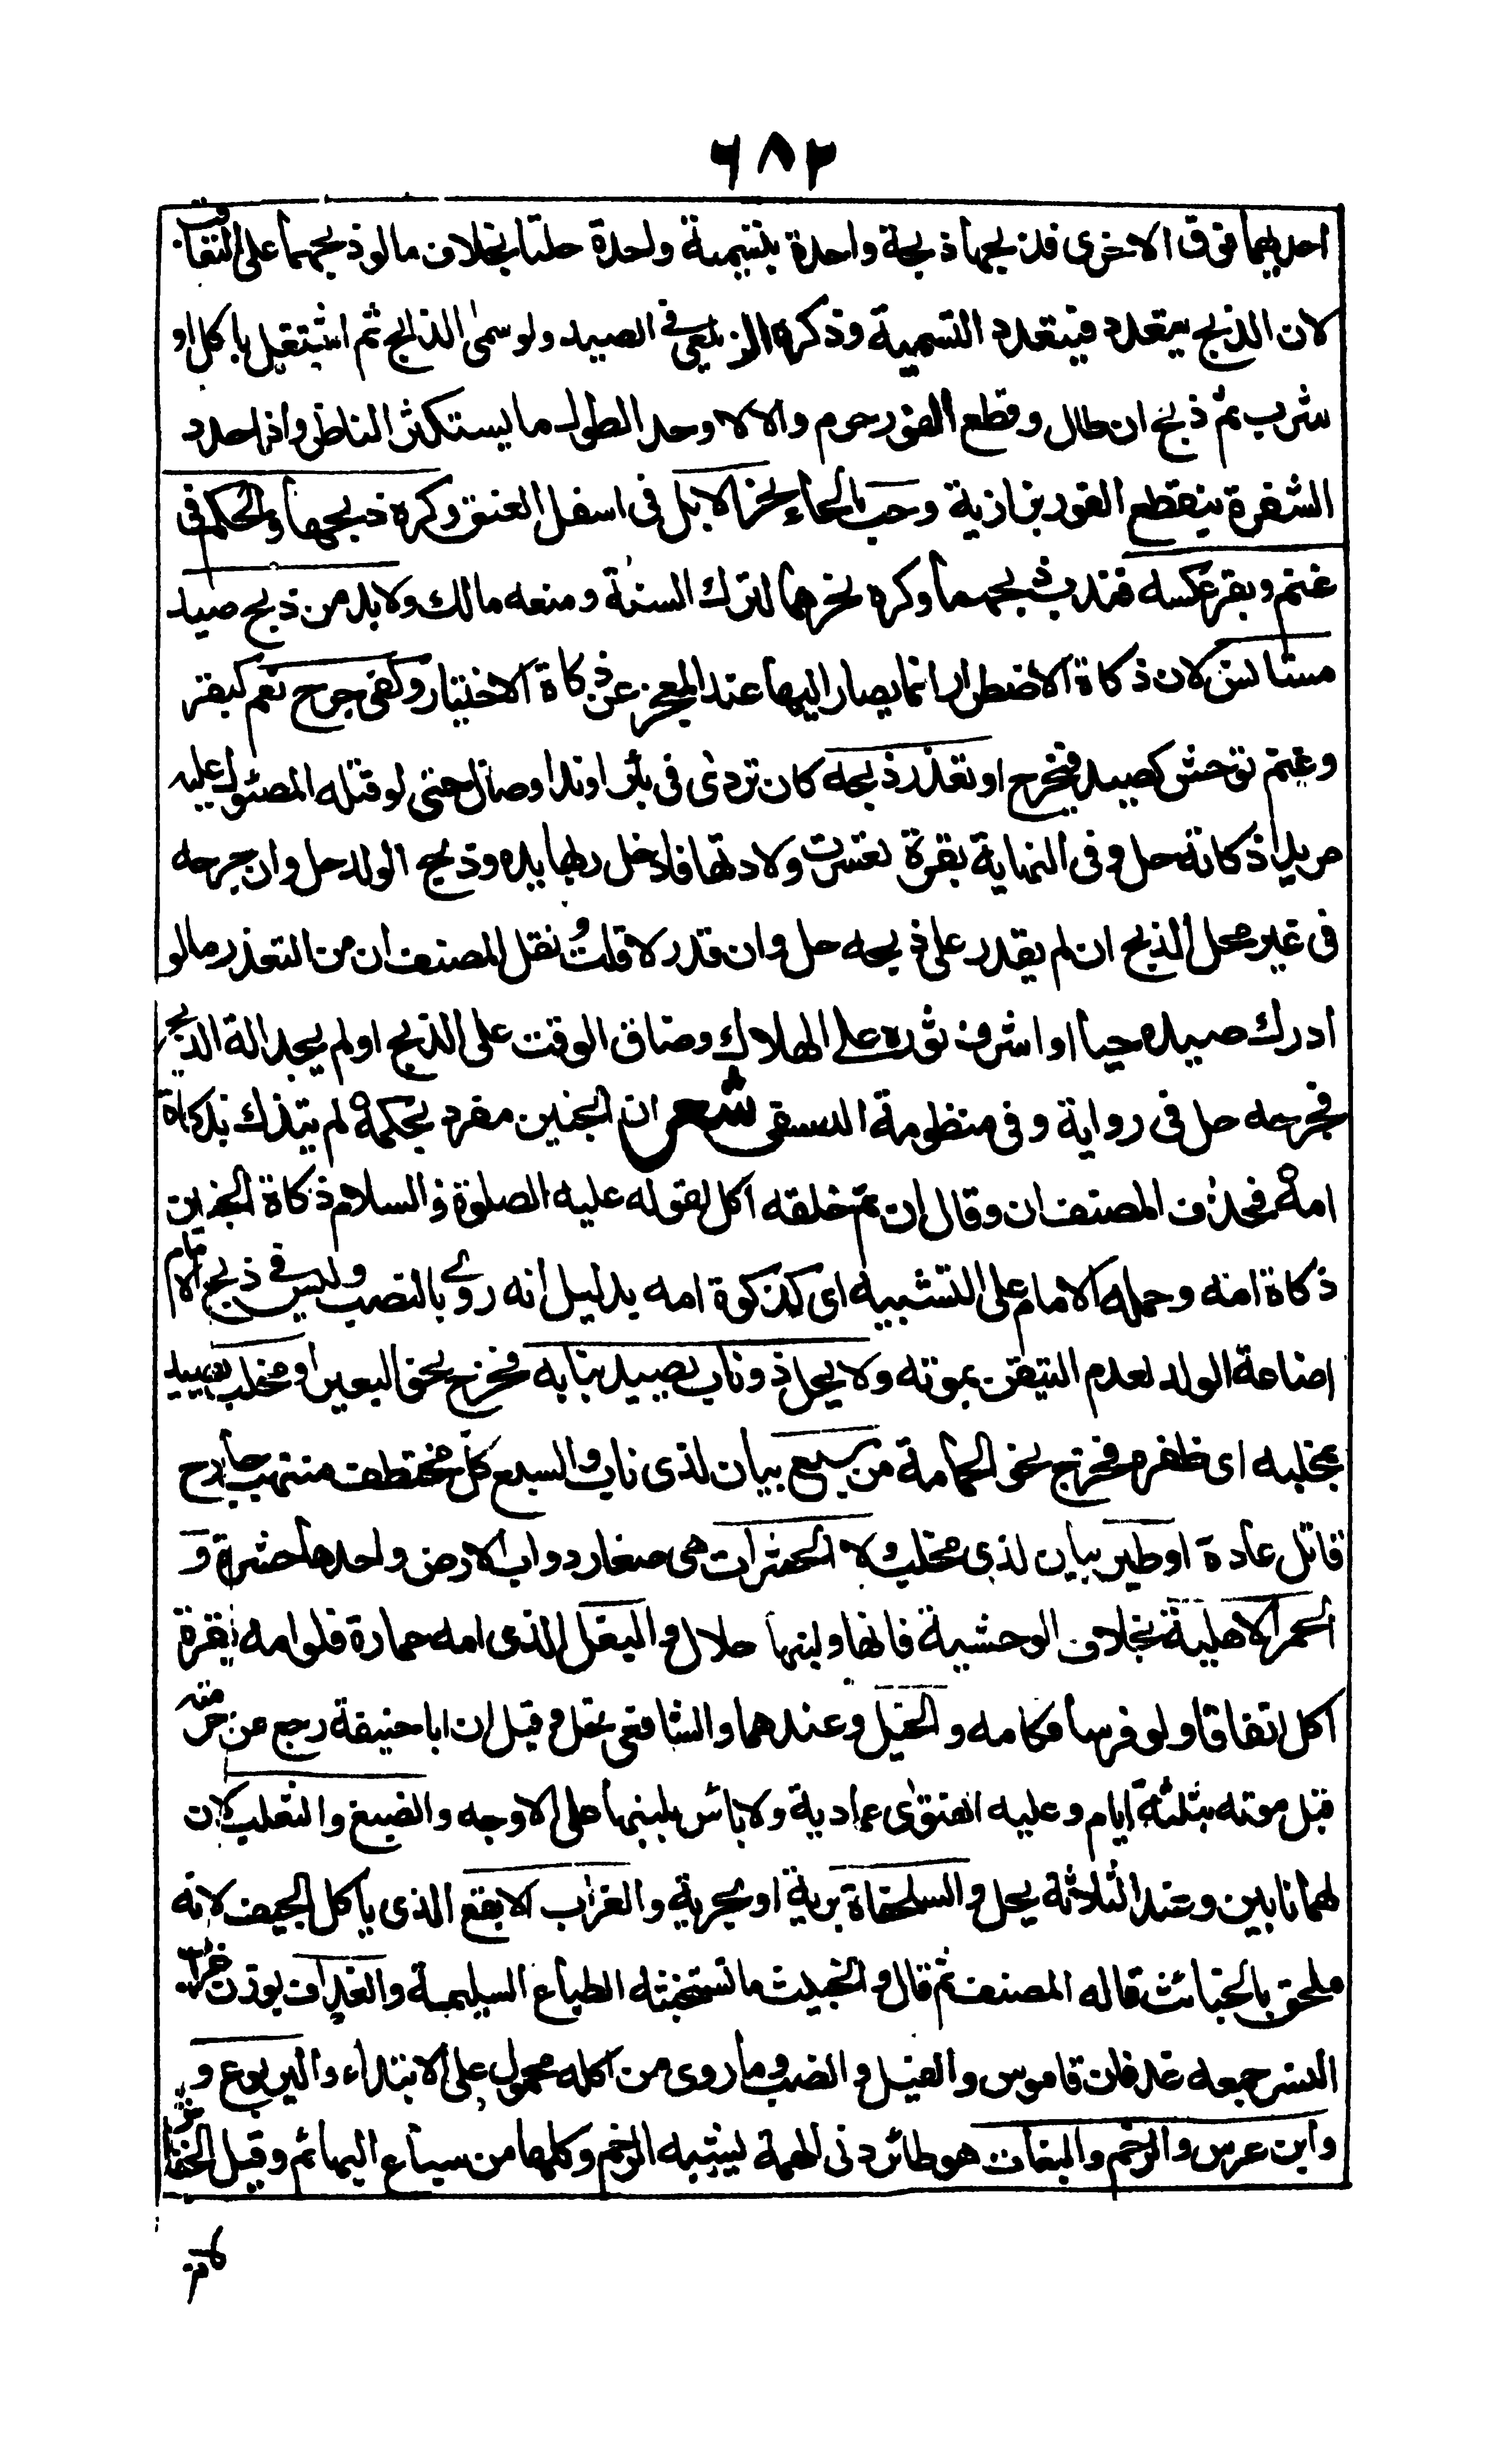 ٦٨٢
احديهما فوق الاخرى فذبحهما ذبحة واحدة بتسمية واحدة حلتا بخلاف مالو ذبحهما على التعاقب
لان الذبح يتعدد فيتعدد التسمية وذكره الزيلعى فى الصيد ولو سمى الذابح ثم اشتغل باكل او
شرب ثم ذبح ان طال وقطع الفور حرم والا لا وحد الطول ما يستكثر الناظر واذا حدد
الشفرة ينقطع الفور بزازية وحب بالحاء نحر الابل فى اسفل العنق وكره ذبحها والحكم فى
غنم وبقر عكسه فندب ذبحهما وكره نحرهما لترك السنة ومنعه مالك ولابد من ذبح صيد
مستانس لان ذكاة الاضطرار انما يصار اليها عند العجز عن ذكاة الاختيار وكفى جرح نعم كبقر
وغنم توحش كصيد فيخرج او تعذر ذبحه كان تردى فى بئر او ند او صال حتى لو قتله المصئول عليه
مريدا ذكاته حل وفى النهاية بقرة تعسرت ولادتها فادخل ربها يده وذبح الولد حل وان جرحه
فى غير محل الذبح ان لم يقدر على ذبحه حل وان قدر لا قلت ونقل المصنف ان من التعذر ما لو
ادرك صيده حيا او اشرف ثوره على الهلاك وضاق الوقت على الذبح او لم يجد الة الذبح
فجرحه حل فى رواية وفى منظومة النسفى شعر ان الجنين مفرد بحكمه لم يتذك بذكاة
امه فحذف المصنف ان وقال ان تم خلقه اكل لقوله عليه الصلوة والسلام ذكاة الجنين
ذكاة امه وحمله الامام على التشبيه اى كذكوة امه بدليل انه روى بالنصب وليس فى ذبح الام
اضاعة الولد لعدم التيقن بموته ولا يحل ذوناب يصيد بنابه فخرج نحو البعير او مخلب يصيد
بمخلبه اى ظفره فخرج نحو الحمامة من سبع بيان لذى ناب والسبع كل مختطف منتهب جارح
قاتل عادة او طير بيان لذى مخلب ولا الحشرات هى صغار دواب الارض واحدها حشرة و
الحمر الاهلية بخلاف الوحشية فانها ولبنها حلال والبغل الذى امه حمارة فلو امه بقرة
اكل اتفاقا ولو فرسا فكامه والخيل وعندهما والشافعى تحل وقيل ان ابا حنيفة رجع عن حرمته
قبل موته بثلثة ايام وعليه الفتوى عمادية ولا باس بلبنها على الاوجه والضبع والثعلب لان
لهما نابين وعند الثلاثة يحل والسلحفاة برية او بحرية والغراب الابقع الذى ياكل الجيف لانه
ملحق بالخبائث قاله المصنف ثم قال والخبيث ما تستخبثه الطباع السليمة والغداف بوزن غراب
النسر جمعه غدفان قاموس والفيل والضب وما روى من اكله محمول على الابتداء واليربوع و
وابن عرس والرخم والبغاث هو طائر دنى الهمة يشبه الرخم وكلها من سباع البهائم وقيل الخفاش